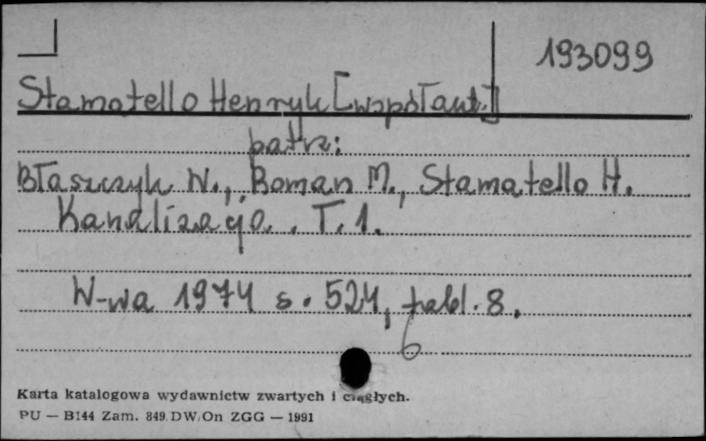 193099
Stamatello Henryk [współaut.]
patrz:
Błaszczyk W., Roman M., Stamatello H.
Kanalizacja. T. 1.
W-wa 1974 s. 524, tabl. 8.
Karta katalogowa wydawnictw zwartych i ciągłych.
PU — B144 Zam. 849 DW/On ZGG — 1991